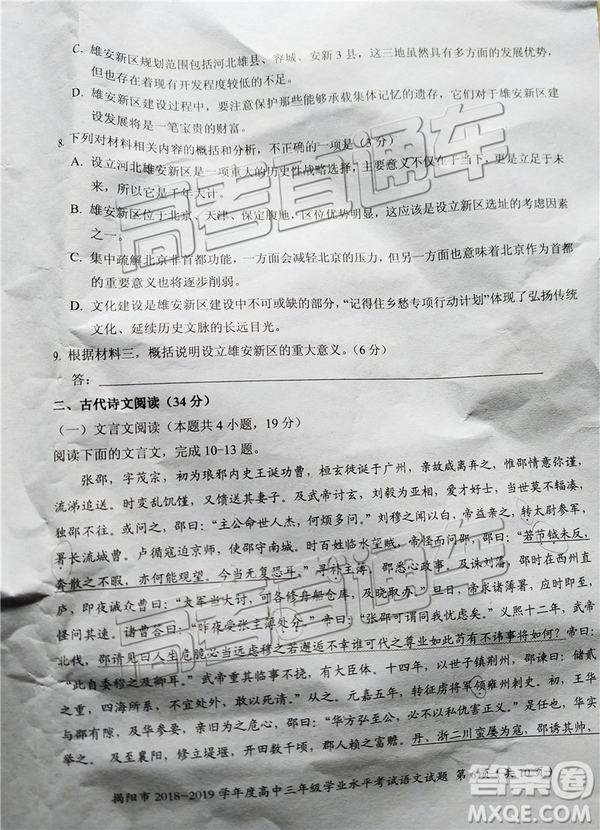 C. 雄安新区规划范围包括河北雄县、容城、安新3县，这三地虽然具有多方面的发展优势，
但也存在现有开发程度较低的不足。
D. 雄安新区建设过程中，要注意保护那些能够承载集体记忆的遗存，它们对雄安新区建
设发展将是一笔宝贵的财富。
8. 下列对材料相关内容的概括和分析，不正确的一项是（3分）
A. 设立河北雄安新区是一项重大的历史性战略选择，主要意义在于疏解北京非首都功能，
其实是千年大计。
B. 雄安新区位于北京、天津、保定腹地，区位优势明显，这应该是设立新区选址的考虑因素
之一。
C. 集中疏解北京非首都功能，一方面会减缓北京的压力，但另一方面也意味着北京作为首都
的重要意义也将逐步削弱。
D. 文化建设是雄安新区建设中不可或缺的部分，“记得住乡愁专项行动计划”体现了弘扬传统
文化、延续历史文脉的长远目光。
9. 根据材料三，概括说明设立雄安新区的重大意义。（6分）
答：
二、古代诗文阅读（34分）
（一）文言文阅读（本题共4小题，19分）
阅读下面的文言文，完成10-13题。
张邵，字茂宗，初为琅邪内史王诞功曹，桓玄徙诞于广州，亲故咸离弃之，惟邵情意弥谨，
流涕追送。时变乱饥馑，又馈送其妻子。及武帝讨玄，刘毅为亚相，爱才好士，当世莫不辐凑，
独邵不往。或问之，邵曰：“主公命世人杰，何烦多问。”刘穆之闻以白，帝益亲之，转太尉参军，
署长流城曹。卢循寇迫京师，使邵守南城。时百姓临水望贼，帝怪而问邵，邵曰：“若节钺未反，
奔散之不暇，亦何能观望。今当无复恐耳。”寻补主簿。邵悉心政事，及诛刘藩，邵时在西州直
庐，即夜诫众曹曰：“大军当大讨，可各修舟船仓库，及晓取办。”旦日，帝求诸簿署，应时即至，
怪问其速。诸曹答曰：“昨夜受张主簿处分。”帝曰：“张邵可谓同我忧虑矣。”义熙十二年，武帝
北伐，邵请见曰人生危脆必当远虑穆之若邂逅不幸谁可代之尊业如此苟有不讳事将如何？帝曰：
“此自委穆之及卿耳。”武帝重其临事不挠，有大臣体。十四年，以世子镇荆州，邵谏曰：“储贰
之重，四海所系，不宜处外，敢以死请。”世子竟不行。元嘉五年，转征虏将军领雍州刺史。初，王华
与邵有隙，及华参要，亲旧为之危心，邵曰：“华方弘至公，必不以私仇害正义。”是任也，华实
举之。及至襄阳，修立堤堰，开田数千顷，郡人赖之富赡。丹、浙二川蛮屡为寇，邵诱其帅，
揭阳市 2018-2019 学年度高中三年级学业水平考试语文试题 第 页（共 10 页）
高考直通车
高考直通车
答案圈
MXQE.COM